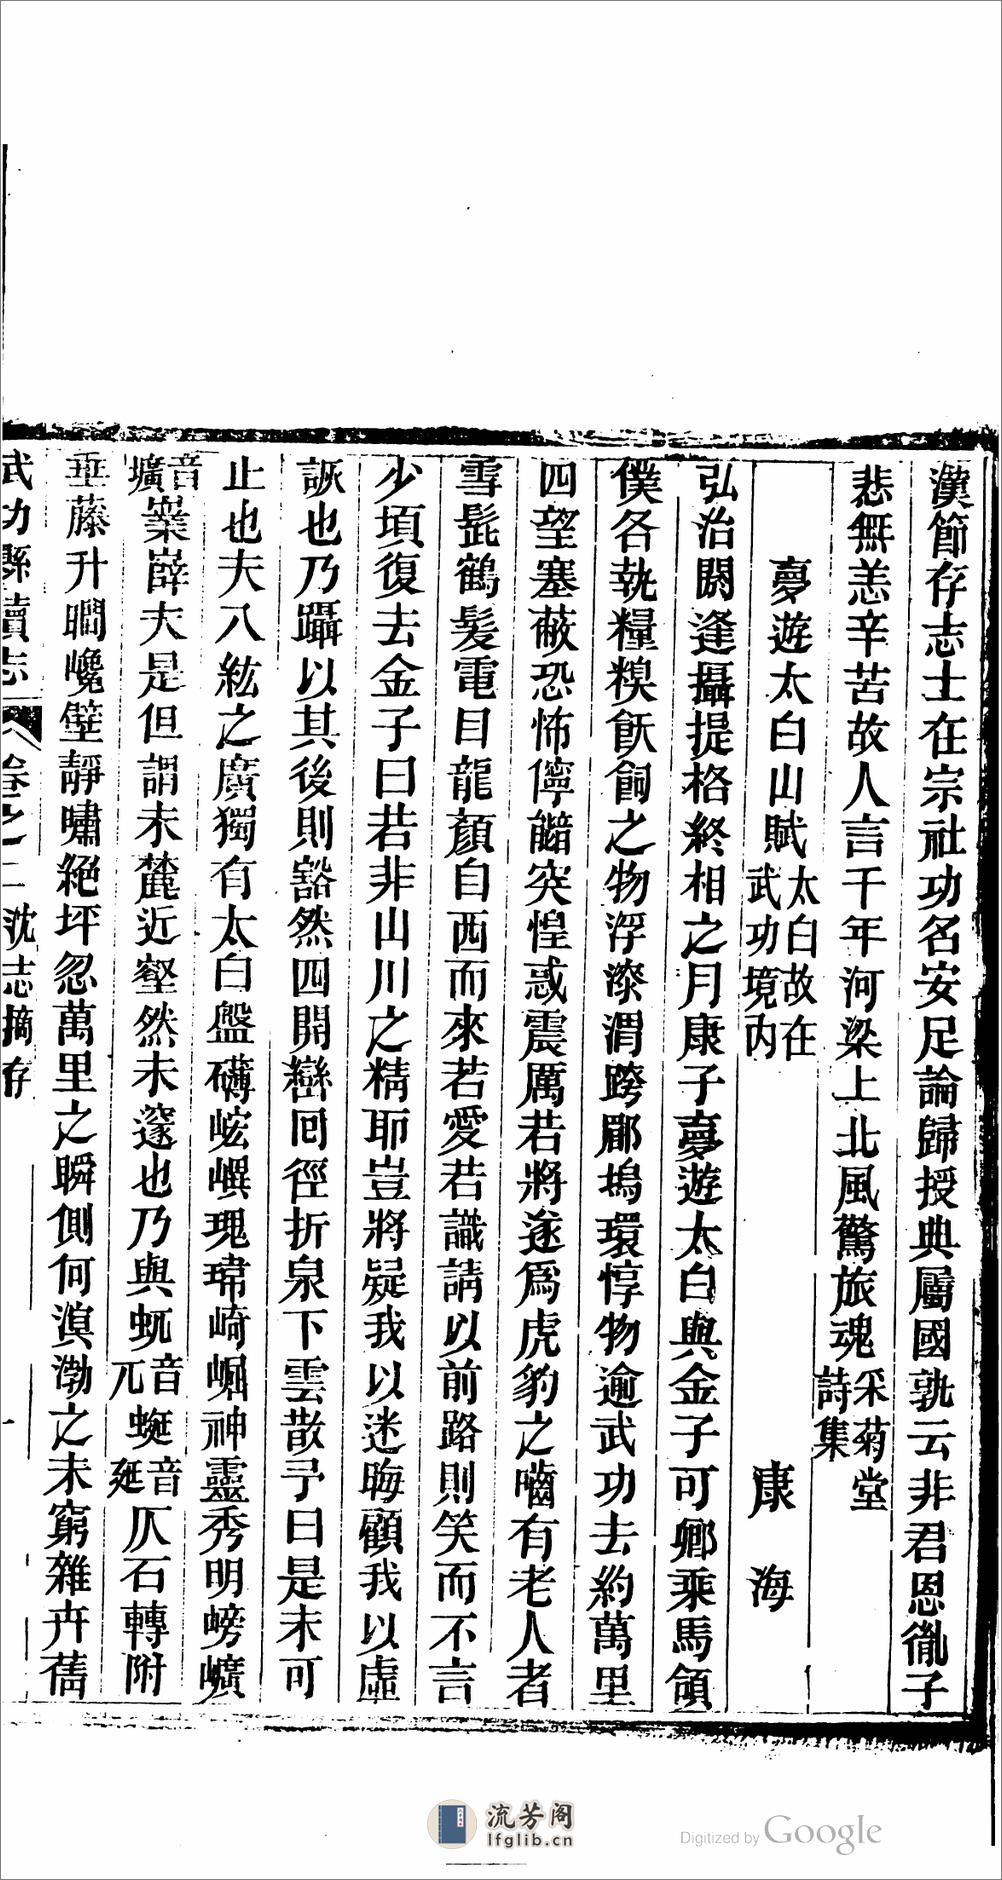 漢節存志士在宗社功名安足論歸授典屬國孰云非君恩胤子
悲無恙辛苦故人言千年河梁上北風驚旅魂采菊堂詩集
夢遊太白山賦太白故在武功境内 康 海
弘治閼逢攝提格終相之月康子夢遊太白與金子可卿乘馬領
僕各執糧糗飫飼之物浮漆渭跨郿塢環惇物逾武功去約萬里
四望塞蔽恐怖儜㒓突惶惑震厲若將遂爲虎豹之嚙有老人者
雪髭鶴髮電目龍顏自西而來若愛若識請以前路則笑而不言
少頃復去金子曰若非山川之精耶豈將疑我以迷晦顧我以虛
誑也乃躡以其後則豁然四開巒囘徑折泉下雲散予曰是未可
止也夫八紘之廣獨有太白盤礴㟅㠂瑰瑋崎崛神靈秀明嵭㠓
音壙嶪嶭夫是但謂未麓近壑然未邃也乃與蚖音兀蜒音延仄石轉附
垂藤升瞷巉壁靜嘯絕坪忽萬里之瞬側何溟渤之未窮雜卉蒨
武功縣續志 卷之二沈志摘存 一
流芳阁
lfglib.cn
Digitized by Google